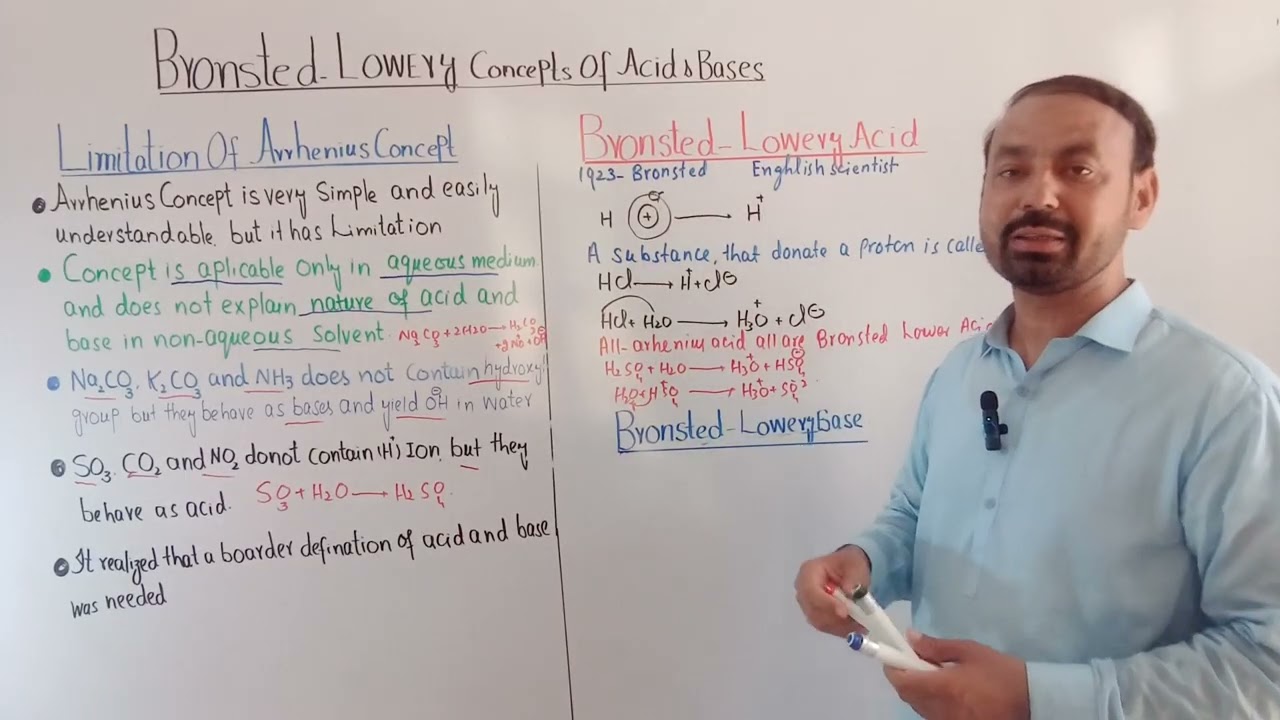 Bronsted-Lowery Concepts Of Acid & Bases
Limitation Of Arrhenius Concept
Arrhenius Concept is very Simple and easily
understandable but it has Limitation
Concept is aplicable Only in aqueous medium
and does not explain nature of acid and
base in non-aqueous Solvent. Na2CO3+2H2O→H2CO3
+2Na+OH
Na2CO3, K2CO3 and NH3 does not contain hydroxyl
group but they behave as bases and yield OH⊖ in water
SO3, CO2 and NO2 donot contain (H+) Ion but they
behave as acid. SO3+H2O→H2SO4
It realized that a boarder defination of acid and base
was needed
Bronsted-Lowery Acid
1923-Bronsted Enghlish scientist
H + → H+
A substance, that donate a proton is
HCl→H++Cl⊖
HCl+H2O→H3O++Cl⊖
All-arhenius acid all are Bronsted Lower
H2SO4+H2O→H3O++HSO4⊖
→H3O++SO4
Bronsted-Lowery base